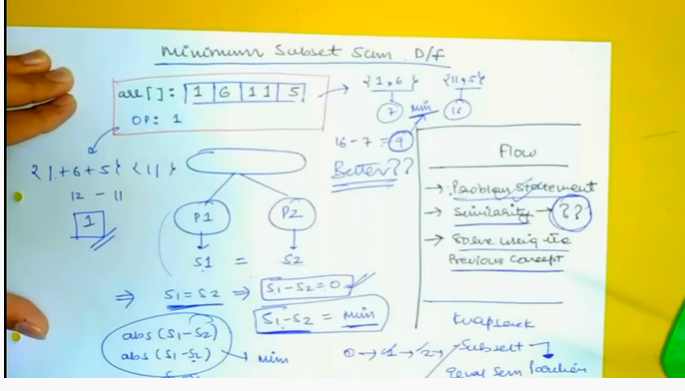 Minimum Subset Sum D/f
arr[]: 1 6 11 5
OP: 1
{1,6} {11,5}
7 min 16
16-7 = 9
Better??
{1+6+5} {11}
12 - 11
1
P1 P2
S1 = S2
⇒ S1=S2 ⇒ S1-S2=0
S1-S2 = min
abs(S1-S2)
abs(S1-S2) → Min
Flow
→ Problem Statement
→ Similarity → ??
→ Solve using the
Previous Concept
Knapsack
Subset
Equal Sum Partition